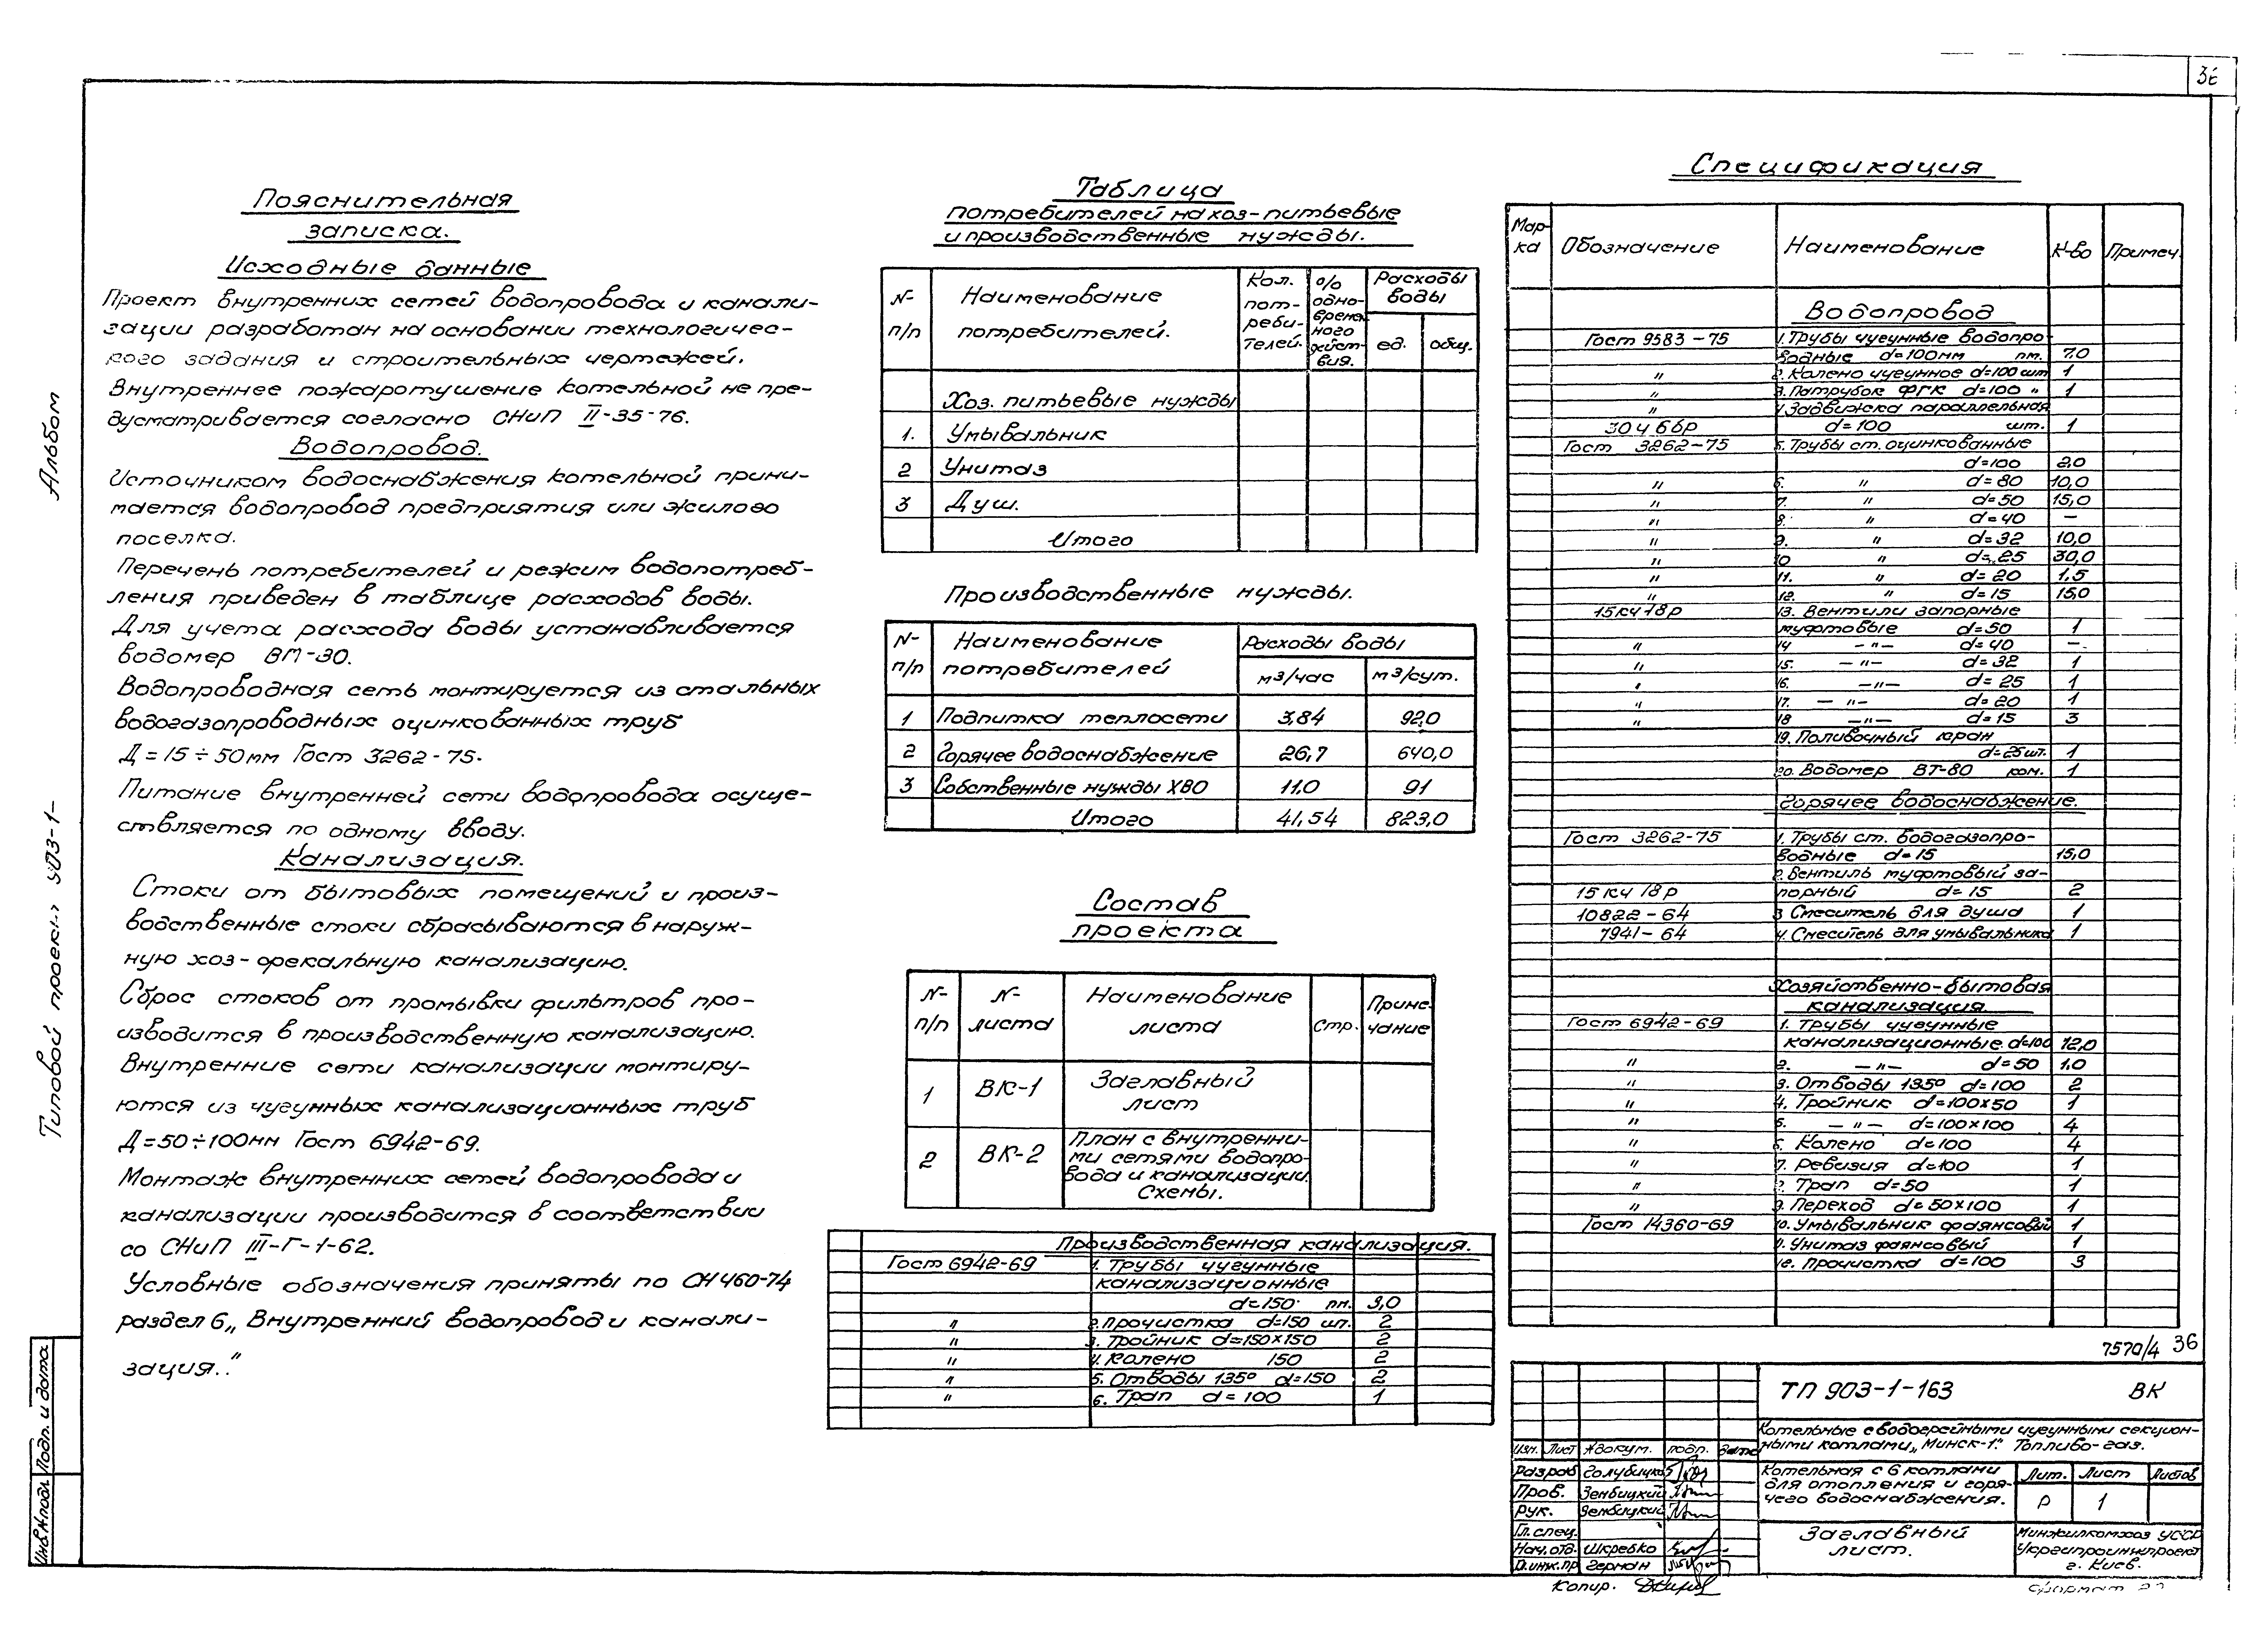 36
Пояснительная
записка.
Исходные данные
Проект внутренних сетей водопровода и канали-
зации разработан на основании технологичес-
кого задания и строительных чертежей.
Внутреннее пожаротушение котельной не пре-
дусматривается согласно СНиП II-35-76.
Водопровод.
Источником водоснабжения котельной прини-
мается водопровод предприятия или жилого
поселка.
Перечень потребителей и режим водопотреб-
ления приведен в таблице расходов воды.
Для учета расхода воды устанавливается
водомер ВМ-30.
Водопроводная сеть монтируется из стальных
водогазопроводных оцинкованных труб
Д=15÷50мм Гост 3262-75.
Питание внутренней сети водопровода осуще-
ствляется по одному вводу.
Канализация.
Стоки от бытовых помещений и произ-
водственные стоки сбрасываются в наруж-
ную хоз-фекальную канализацию.
Сброс стоков от промывки фильтров про-
изводится в производственную канализацию.
Внутренние сети канализации монтиру-
ются из чугунных канализационных труб
Д=50÷100мм Гост 6942-69.
Монтаж внутренних сетей водопровода и
канализации производится в соответствии
со СНиП III-Г-1-62.
Условные обозначения приняты по СН 460-74
раздел 6 „Внутренний водопровод и канали-
зация.."
Таблица
потребителей на хоз-питьевые
и производственные нужды.
N-п/п Наименование потребителей. Кол. пот-реби-телей. % одно-времен-ного дейст-вия. Расходы воды ед. общ.
Хоз. питьевые нужды
1. Умывальник
2 Унитаз
3 Душ.
Итого
Производственные нужды.
N-п/п Наименование потребителей Расходы воды м³/час м³/сут.
1 Подпитка теплосети 3,84 92,0
2 Горячее водоснабжение 26,7 640,0
3 Собственные нужды ХВО 11.0 91
Итого 41,54 823,0
Состав
проекта
N-п/п N-листа Наименование листа Стр. Приме-чание
1 ВК-1 Заглавный
лист
2 ВК-2 План с внутренни-
ми сетями водопро-
вода и канализации.
Схемы.
Производственная канализация.
Гост 6942-69 1. Трубы чугунные
канализационные
d=150 пм. 3,0
" 2. Прочистка d=150 шт. 2
" 3. Тройник d=150х150 2
" 4. Колено 150 2
" 5. Отводы 135° d=150 2
" 6. Трап d=100 1
Спецификация
Мар-ка Обозначение Наименование К-во Примеч.
Водопровод
Гост 9583-75 1. Трубы чугунные водопро-
водные d=100мм пм. 7.0
" 2. Колено чугунное d=100 шт 1
" 3. Патрубок ФГК d=100 " 1
" 4. Задвижка параллельная
30ч6бр d=100 шт. 1
Гост 3262-75 5. Трубы ст. оцинкованные
d=100 2.0
" 6. " d=80 10,0
" 7. " d=50 15,0
" 8. " d=40 —
" 9. " d=32 10,0
" 10 " d=25 30,0
" 11. " d=20 1,5
" 12. " d=15 15,0
15кч18р 13. Вентили запорные
муфтовые d=50 1
" 14 —"— d=40 —
" 15. —"— d=32 1
" 16. —"— d=25 1
" 17. —"— d=20 1
" 18 —"— d=15 3
19. Поливочный кран
d=25 шт. 1
20. Водомер ВТ-80 ком. 1
Горячее водоснабжение.
Гост 3262-75 1. Трубы ст. водогазопро-
водные d=15 15,0
2. Вентиль муфтовый за-
15кч18р порный d=15 2
10822-64 3 Смеситель для душа 1
7941-64 4. Смеситель для умывальника 1
Хозяйственно-бытовая
канализация
Гост 6942-69 1. Трубы чугунные
канализационные d=100 12,0
" 2. —"— d=50 1,0
" 3. Отводы 135° d=100 2
" 4. Тройник d=100х50 1
" 5. —"— d=100х100 4
" 6. Колено d=100 4
" 7. Ревизия d=100 1
" Трап d=50 1
" 9. Переход d=50х100 1
Гост 14360-69 10. Умывальник фаянсовый 1
Унитаз фаянсовый 1
12. Прочистка d=100 3
7570/4 36
ТП 903-1-163 ВК
Котельные с водогрейными чугунными секцион-
ными котлами „Минск-1." Топливо-газ.
Изм. Лист Nдокум. подп. Дата
Разраб Голубицка
Пров. Зенбицкий
Рук. Зенбицкий
Гл. спец.
Нач. отд. Шкребко
Гл. инж. пр Герман
Котельная с 6 котлами
для отопления и горя-
чего водоснабжения.
Лит. Лист Листов
Р 1
Заглавный
лист.
Минжилкомхоз УССР
Укргипроинжпроект
г. Киев.
Копир.
Формат 22
Альбом
Типовой проект 903-1-
Инв.Nподл. Подп. и дата